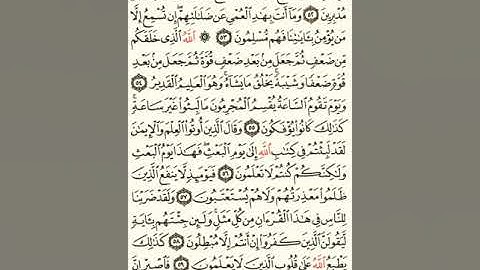 مُدْبِرِينَ ٥٢ وَمَا أَنتَ بِهَٰدِ الْعُمْيِ عَن ضَلَٰلَتِهِمْ إِن تُسْمِعُ إِلَّا
مَن يُؤْمِنُ بِـَٔايَٰتِنَا فَهُم مُّسْلِمُونَ ٥٣ ۞ اللَّهُ الَّذِي خَلَقَكُم
مِّن ضَعْفٍ ثُمَّ جَعَلَ مِنۢ بَعْدِ ضَعْفٍ قُوَّةً ثُمَّ جَعَلَ مِنۢ بَعْدِ
قُوَّةٍ ضَعْفًا وَشَيْبَةً يَخْلُقُ مَا يَشَآءُ وَهُوَ الْعَلِيمُ الْقَدِيرُ ٥٤
وَيَوْمَ تَقُومُ السَّاعَةُ يُقْسِمُ الْمُجْرِمُونَ مَا لَبِثُوا غَيْرَ سَاعَةٍ
كَذَٰلِكَ كَانُوا يُؤْفَكُونَ ٥٥ وَقَالَ الَّذِينَ أُوتُوا الْعِلْمَ وَالْإِيمَٰنَ
لَقَدْ لَبِثْتُمْ فِي كِتَٰبِ اللَّهِ إِلَىٰ يَوْمِ الْبَعْثِ فَهَٰذَا يَوْمُ الْبَعْثِ
وَلَٰكِنَّكُمْ كُنتُمْ لَا تَعْلَمُونَ ٥٦ فَيَوْمَئِذٍ لَّا يَنفَعُ الَّذِينَ
ظَلَمُوا مَعْذِرَتُهُمْ وَلَا هُمْ يُسْتَعْتَبُونَ ٥٧ وَلَقَدْ ضَرَبْنَا
لِلنَّاسِ فِي هَٰذَا الْقُرْءَانِ مِن كُلِّ مَثَلٍ وَلَئِن جِئْتَهُم بِـَٔايَةٍ
لَّيَقُولَنَّ الَّذِينَ كَفَرُوا إِنْ أَنتُمْ إِلَّا مُبْطِلُونَ ٥٨ كَذَٰلِكَ
يَطْبَعُ اللَّهُ عَلَىٰ قُلُوبِ الَّذِينَ لَا يَعْلَمُونَ ٥٩ فَاصْبِرْ إِنَّ